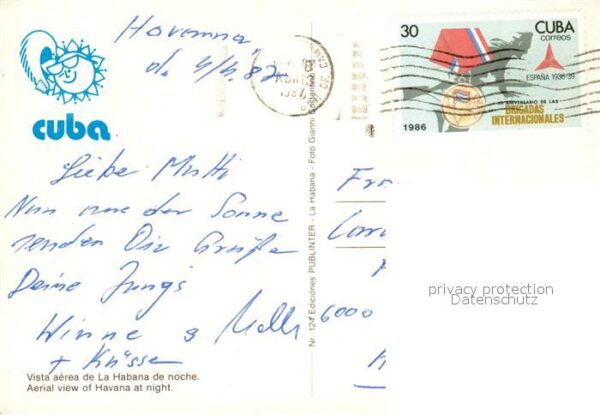 Havanna
d. 4/4.87
cuba
Liebe Mutti
Nun aus der Sonne
senden Dir Grüße
Deine Jungs
Winne &
+ Küsse
Vista aérea de La Habana de noche.
Aerial view of Havana at night.
Nr. 124 Ediciónes PUBLINTER - La Habana - Foto Gianni Costantino
30
CUBA
correos
ESPAÑA 1936-39
ANIVERSARIO DE LAS
BRIGADAS
INTERNACIONALES
1986
1987
6000
privacy protection
Datenschutz